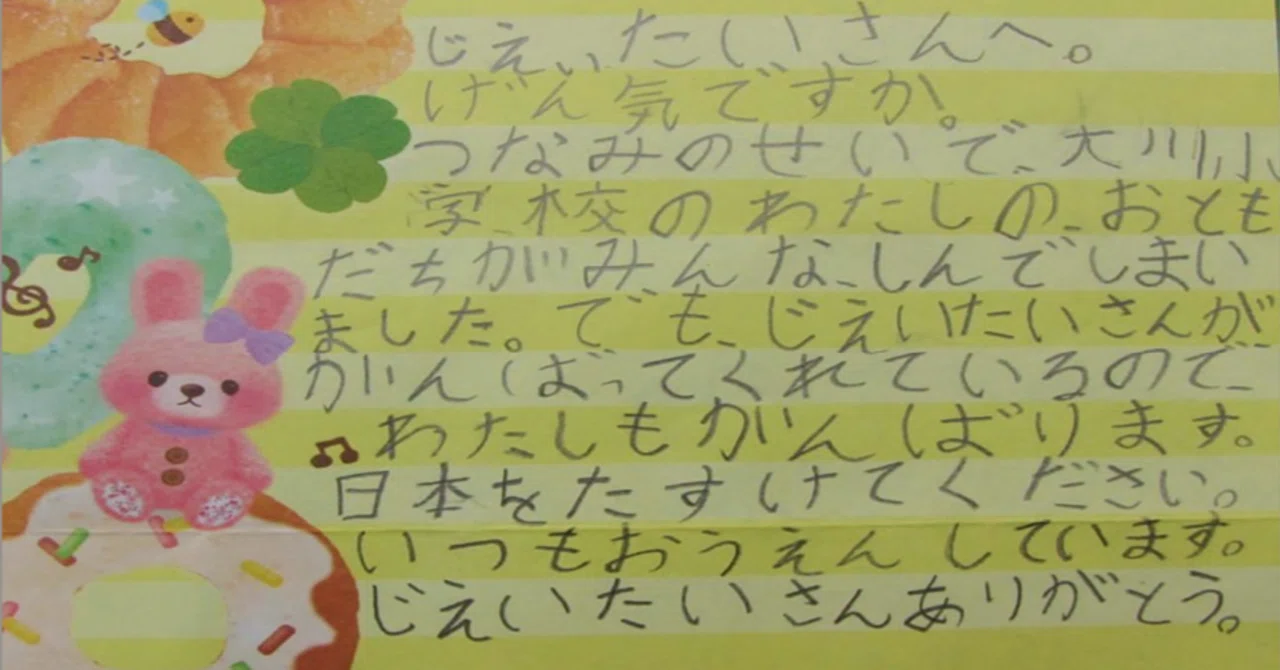 じえぃたいさんへ。
げん気ですか。
つなみのせいで、大川小、
学校のわたしの、おとも
だちがみんな、しんでしまい
ました。でも、じえいたいさんが
がんばってくれているので、
わたしもがんばります。
日本をたすけてください。
いつもおうえんしています。
じえいたいさんありがとう。